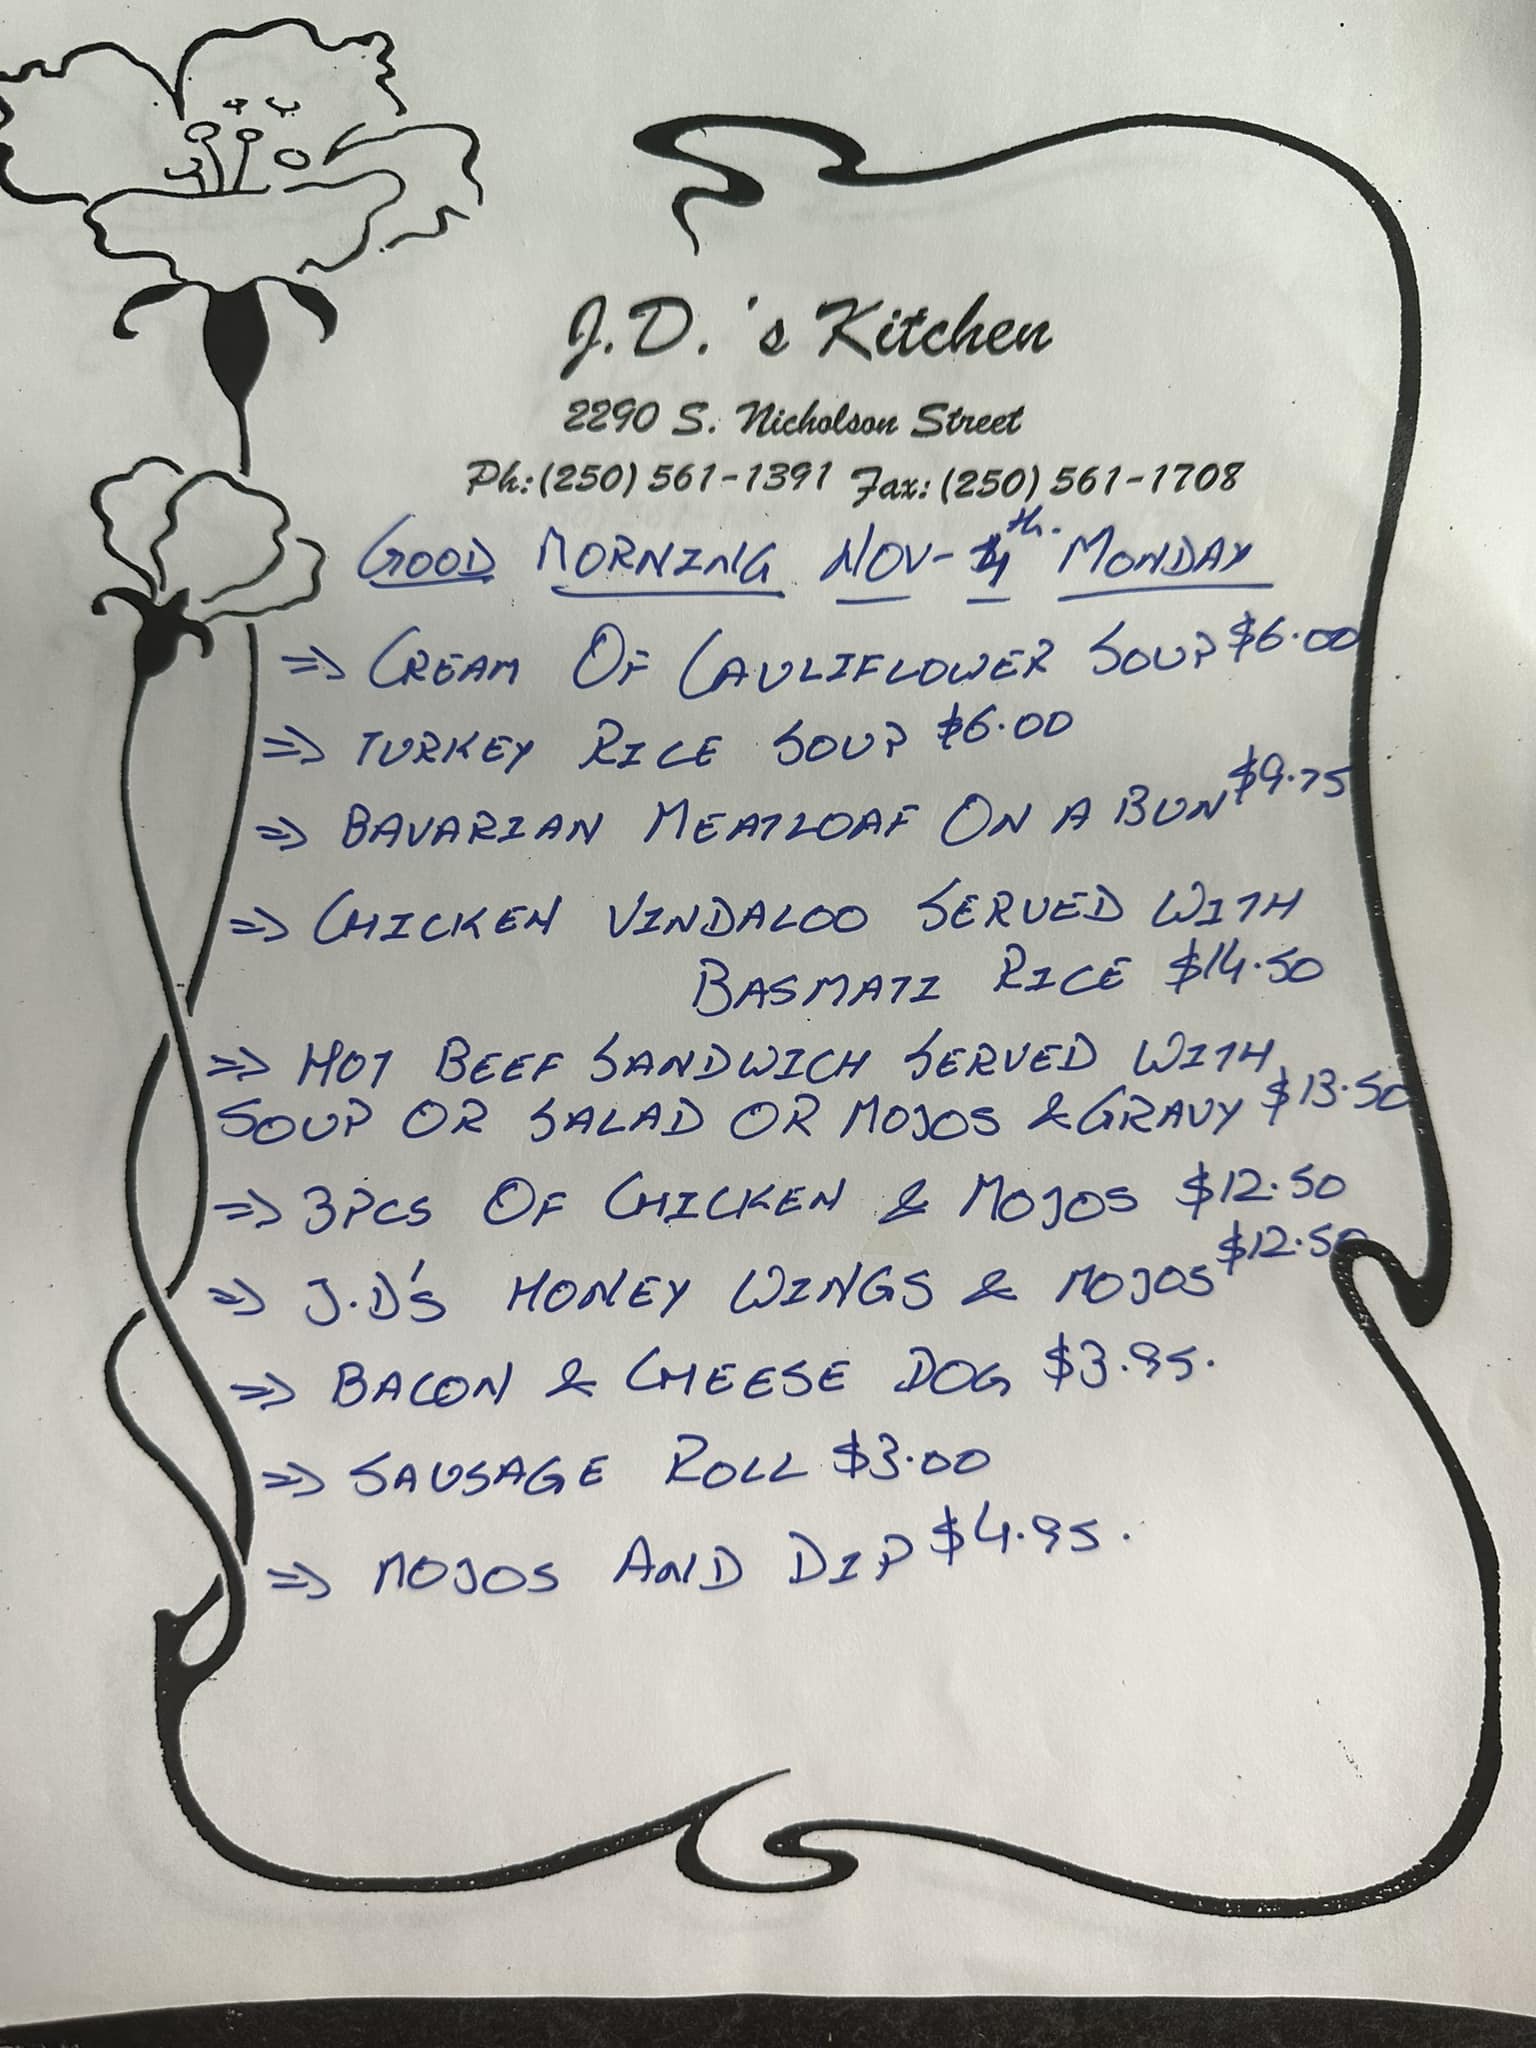 J.D.'s Kitchen
2290 S. Nicholson Street
Ph:(250) 561-1391 Fax: (250) 561-1708
GOOD MORNING NOV- 4th. MONDAY
=> CREAM OF CAULIFLOWER SOUP $6.00
=> TURKEY RICE SOUP $6.00
=> BAVARIAN MEATLOAF ON A BUN $9.75
=> CHICKEN VINDALOO SERVED WITH
BASMATI RICE $14.50
=> HOT BEEF SANDWICH SERVED WITH
SOUP OR SALAD OR MOJOS & GRAVY $13.50
=> 3PCS OF CHICKEN & MOJOS $12.50
=> J.D'S HONEY WINGS & MOJOS $12.50
=> BACON & CHEESE DOG $3.95.
=> SAUSAGE ROLL $3.00
=> MOJOS AND DIP $4.95.